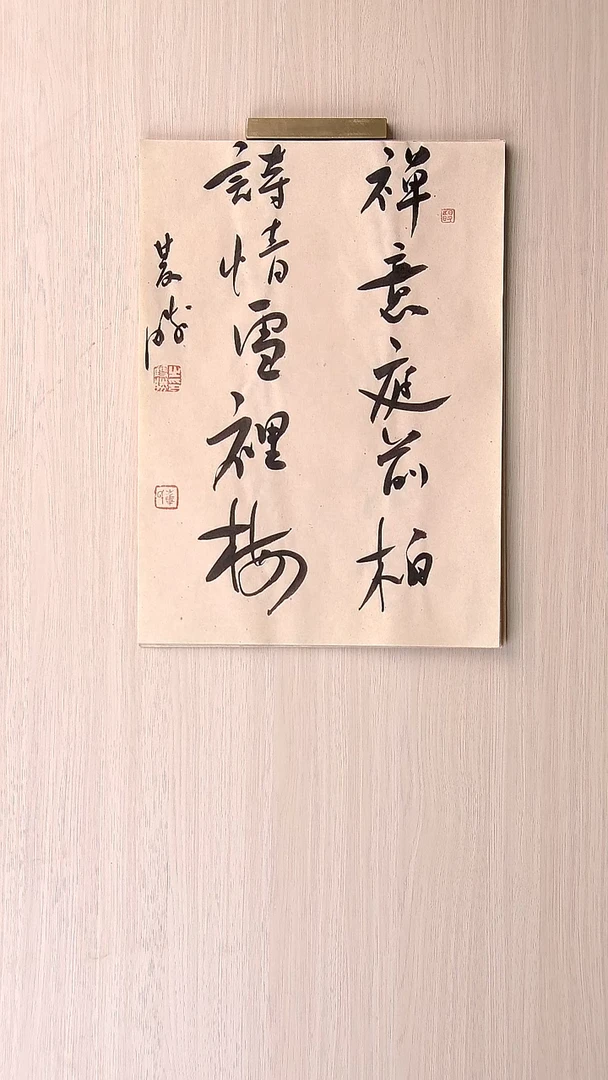 禅意庭前柏
詩情雪裡梅